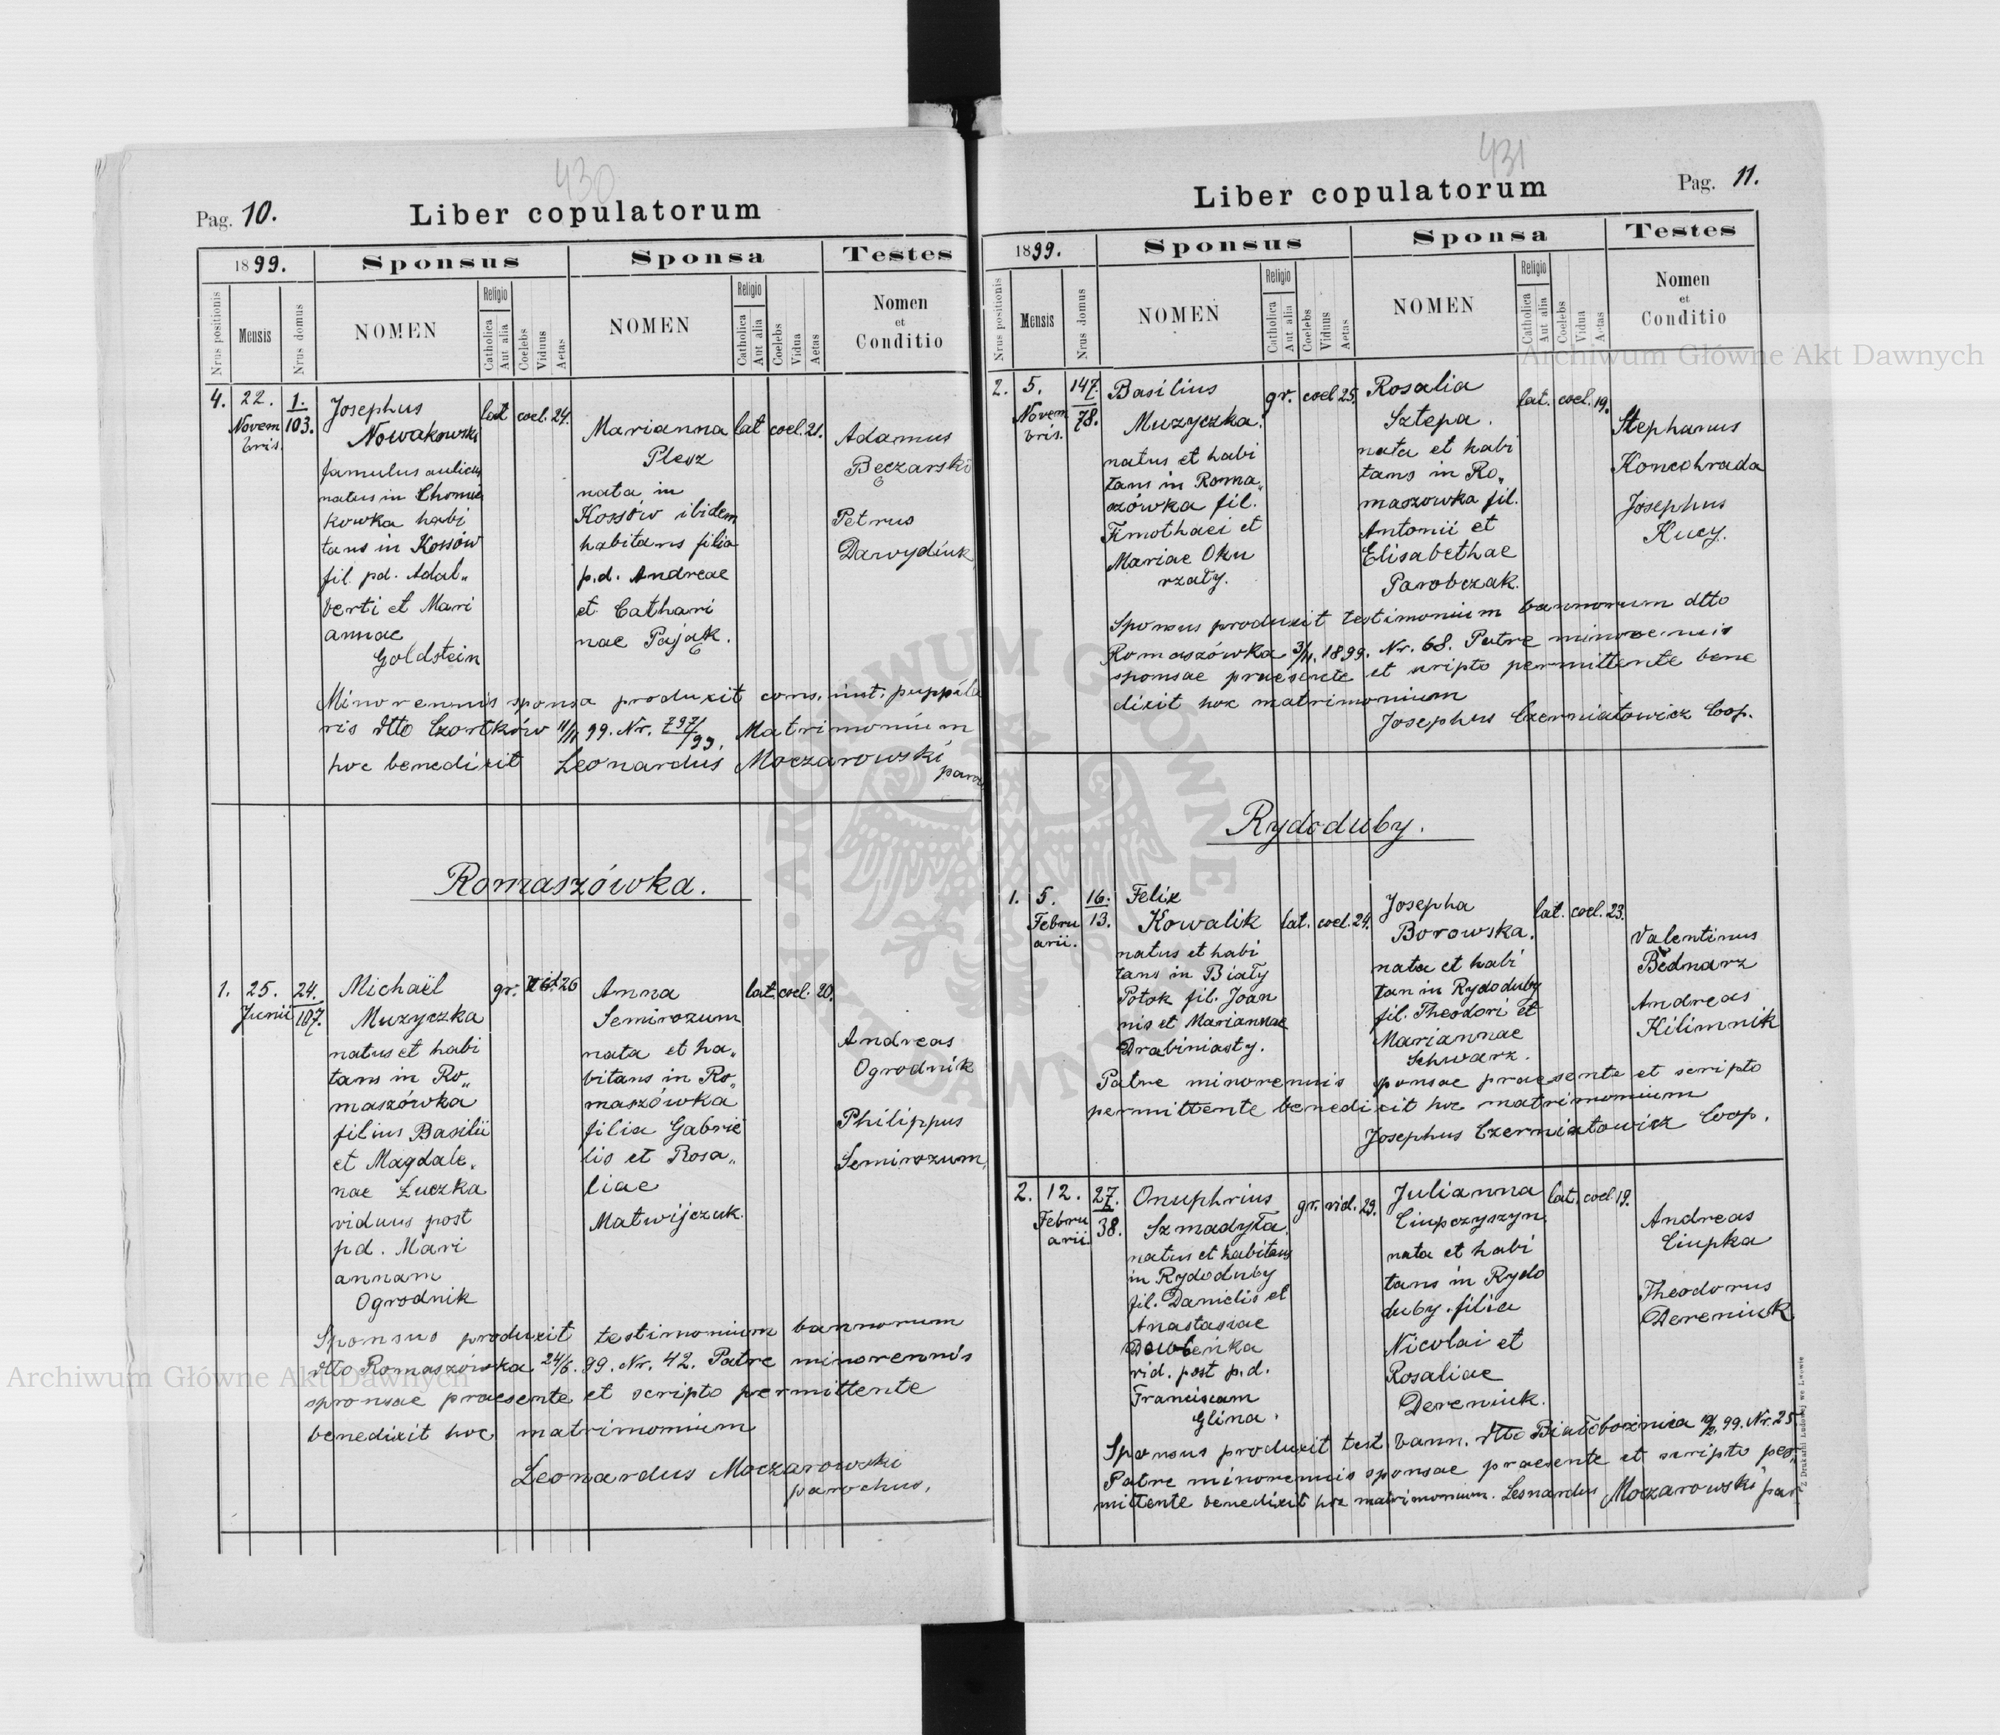 430
Pag. 10.
Liber copulatorum
1899.
Sponsus
Sponsa
Testes
Nrus positionis
Mensis
Nrus domus
NOMEN
Religio
Catholica
Aut alia
Coelebs
Viduus
Aetas
NOMEN
Religio
Catholica
Aut alia
Coelebs
Vidua
Aetas
Nomen
et
Conditio
4.
22.
Novem
bris.
1.
103.
Josephus
Nowakowski
famulus aulicus
natus in Chomia
kowka habi
tans in Kossów
fil. pd. Adal„
berti et Mari
annae
Goldstein
lat
coel.
24.
Marianna
Plesz
nata in
Kossów ibidem
habitans filia
p.d. Andreae
et Cathari
nae Pająk.
lat
coel.
21.
Adamus
Bęczarski
Petrus
Dawydiuk
Minorennis sponsa produxit cons. inst. puppila
ris dtto Czortków 11/11 99. Nr. 797/99. Matrimonium
hoc benedixit Leonardus Moczarowski
paroch
Romaszówka.
1.
25.
Junii
24.
107.
Michaël
Muzyczka
natus et habi
tans in Ro„
maszówka
filius Basilii
et Magdale„
nae Łuczka
viduus post
pd. Mari
annam
Ogrodnik
gr.
vid.
26
Anna
Semirozum
nata et ha„
bitans in Ro„
maszówka
filia Gabrie
lis et Rosa„
liae
Matwijczuk.
lat.
coel.
20.
Andreas
Ogrodnik
Philippus
Semirozum.
Sponsus produxit testimonium bannorum
dtto Romaszówka 24/6. 99. Nr. 42. Patre minorennis
sponsae praesente et scripto permittente
benedixit hoc matrimonium
Leonardus Moczarowski
parochus.
431
Liber copulatorum
Pag. 11.
1899.
Sponsus
Sponsa
Testes
Nrus positionis
Mensis
Nrus domus
NOMEN
Religio
Catholica
Aut alia
Coelebs
Viduus
Aetas
NOMEN
Religio
Catholica
Aut alia
Coelebs
Vidua
Aetas
Nomen
et
Conditio
2.
5.
Novem
bris.
147.
78.
Basilius
Muzyczka.
natus et habi
tans in Roma„
szówka fil.
Timothaei et
Mariae Oku
rzały.
gr.
coel
25.
Rosalia
Sztepa.
nata et habi
tans in Ro„
maszowka fil.
Antonii et
Elisabethae
Parobczak.
lat.
coel.
19.
Stephanus
Koncohrada
Josephus
Kucy.
Sponsus produxit testimonium bannorum dtto
Romaszówka 3/11. 1899. Nr. 68. Patre minorennis
sponsae praesente et scripto permittente bene
dixit hoc matrimonium
Josephus Czerniatowicz Coop.
Rydoduby.
1.
5.
Febru
arii.
16.
13.
Felix
Kowalik
natus et habi
tans in Biały
Potok fil. Joan
nis et Mariannae
Drabiniasty.
lat.
coel.
24.
Josepha
Borowska.
nata et habi
tan in Rydoduby
fil. Theodori et
Mariannae
Schwarz.
lat.
coel.
23.
Valentinus
Bednarz
Andreas
Kilimnik
Patre minorennis sponsae praesente et scripto
permittente benedixit hoc matrimonium
Josephus Czerniatowicz Coop.
2.
12.
Febru
arii.
27.
38.
Onuphrius
Szmadyła
natus et habitans
in Rydoduby
fil. Danielis et
Anastasiae
vid. post p.d.
Franciscam
Glina.
gr.
vid.
29.
Julianna
Ciupczyszyn.
nata et habi
tans in Rydo
duby. filia
Nicolai et
Rosaliae
Dereniuk.
lat.
coel.
19.
Andreas
Ciupka
Theodorus
Dereniuk
Sponsus produxit test. bann. dtto Białobożnica 10/2. 99. Nr. 25.
Patre minorennis sponsae praesente et scripto per„
mittente benedixit hoc matrimonium. Leonardus Moczarowski par
Z Drukarni Ludowej we Lwowie
Archiwum Główne Akt Dawnych
Archiwum Główne Akt Dawnych
ARCHIWUM GŁÓWNE AKT DAWNYCH